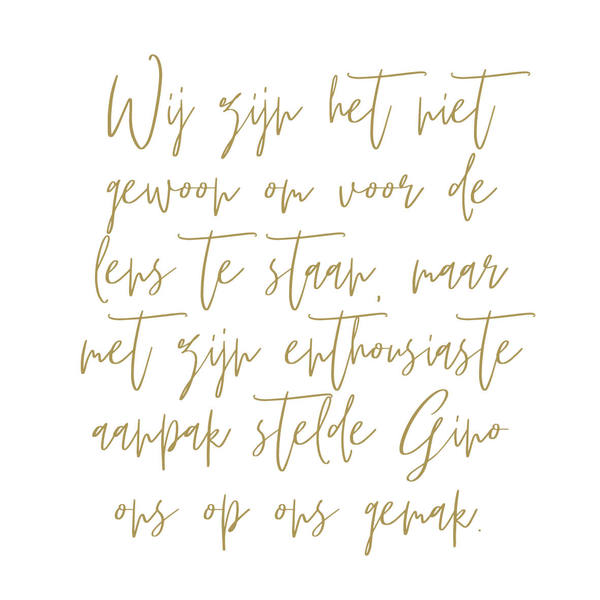 Wij zijn het niet
gewoon om voor de
lens te staan, maar
met zijn enthousiaste
aanpak stelde Gino
ons op ons gemak.